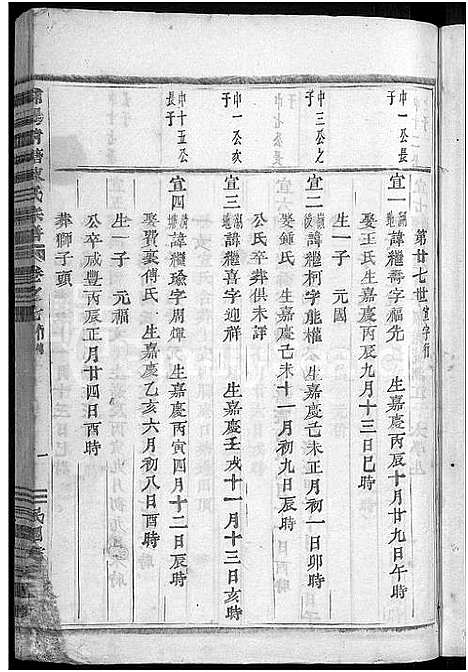 第廿七世宣字行
申一公長子
宣一 諱繼喬字福先 生嘉慶丙辰十月廿九日午時
娶王氏生嘉慶丙辰九月十三日巳時
生一子 元國
申三公之子
宣二 諱繼柯字能權 生嘉慶己未正月初一日卯時
娶鍾氏 生嘉慶己未十一月初九日辰時
公氏卒葬俱未詳
申一公次子
宣三 諱繼喜字迎祥 生嘉慶壬戌十一月十三日亥時
申十五公長子
宣四 諱繼瑜字周煇 生嘉慶丙寅四月十二日辰時
娶費裏傅氏 生嘉慶乙亥六月初八日酉時
生一子 元福
公卒咸豐丙辰正月廿四日酉時
葬獅子頭
陳氏宗譜 卷之七
一
民國